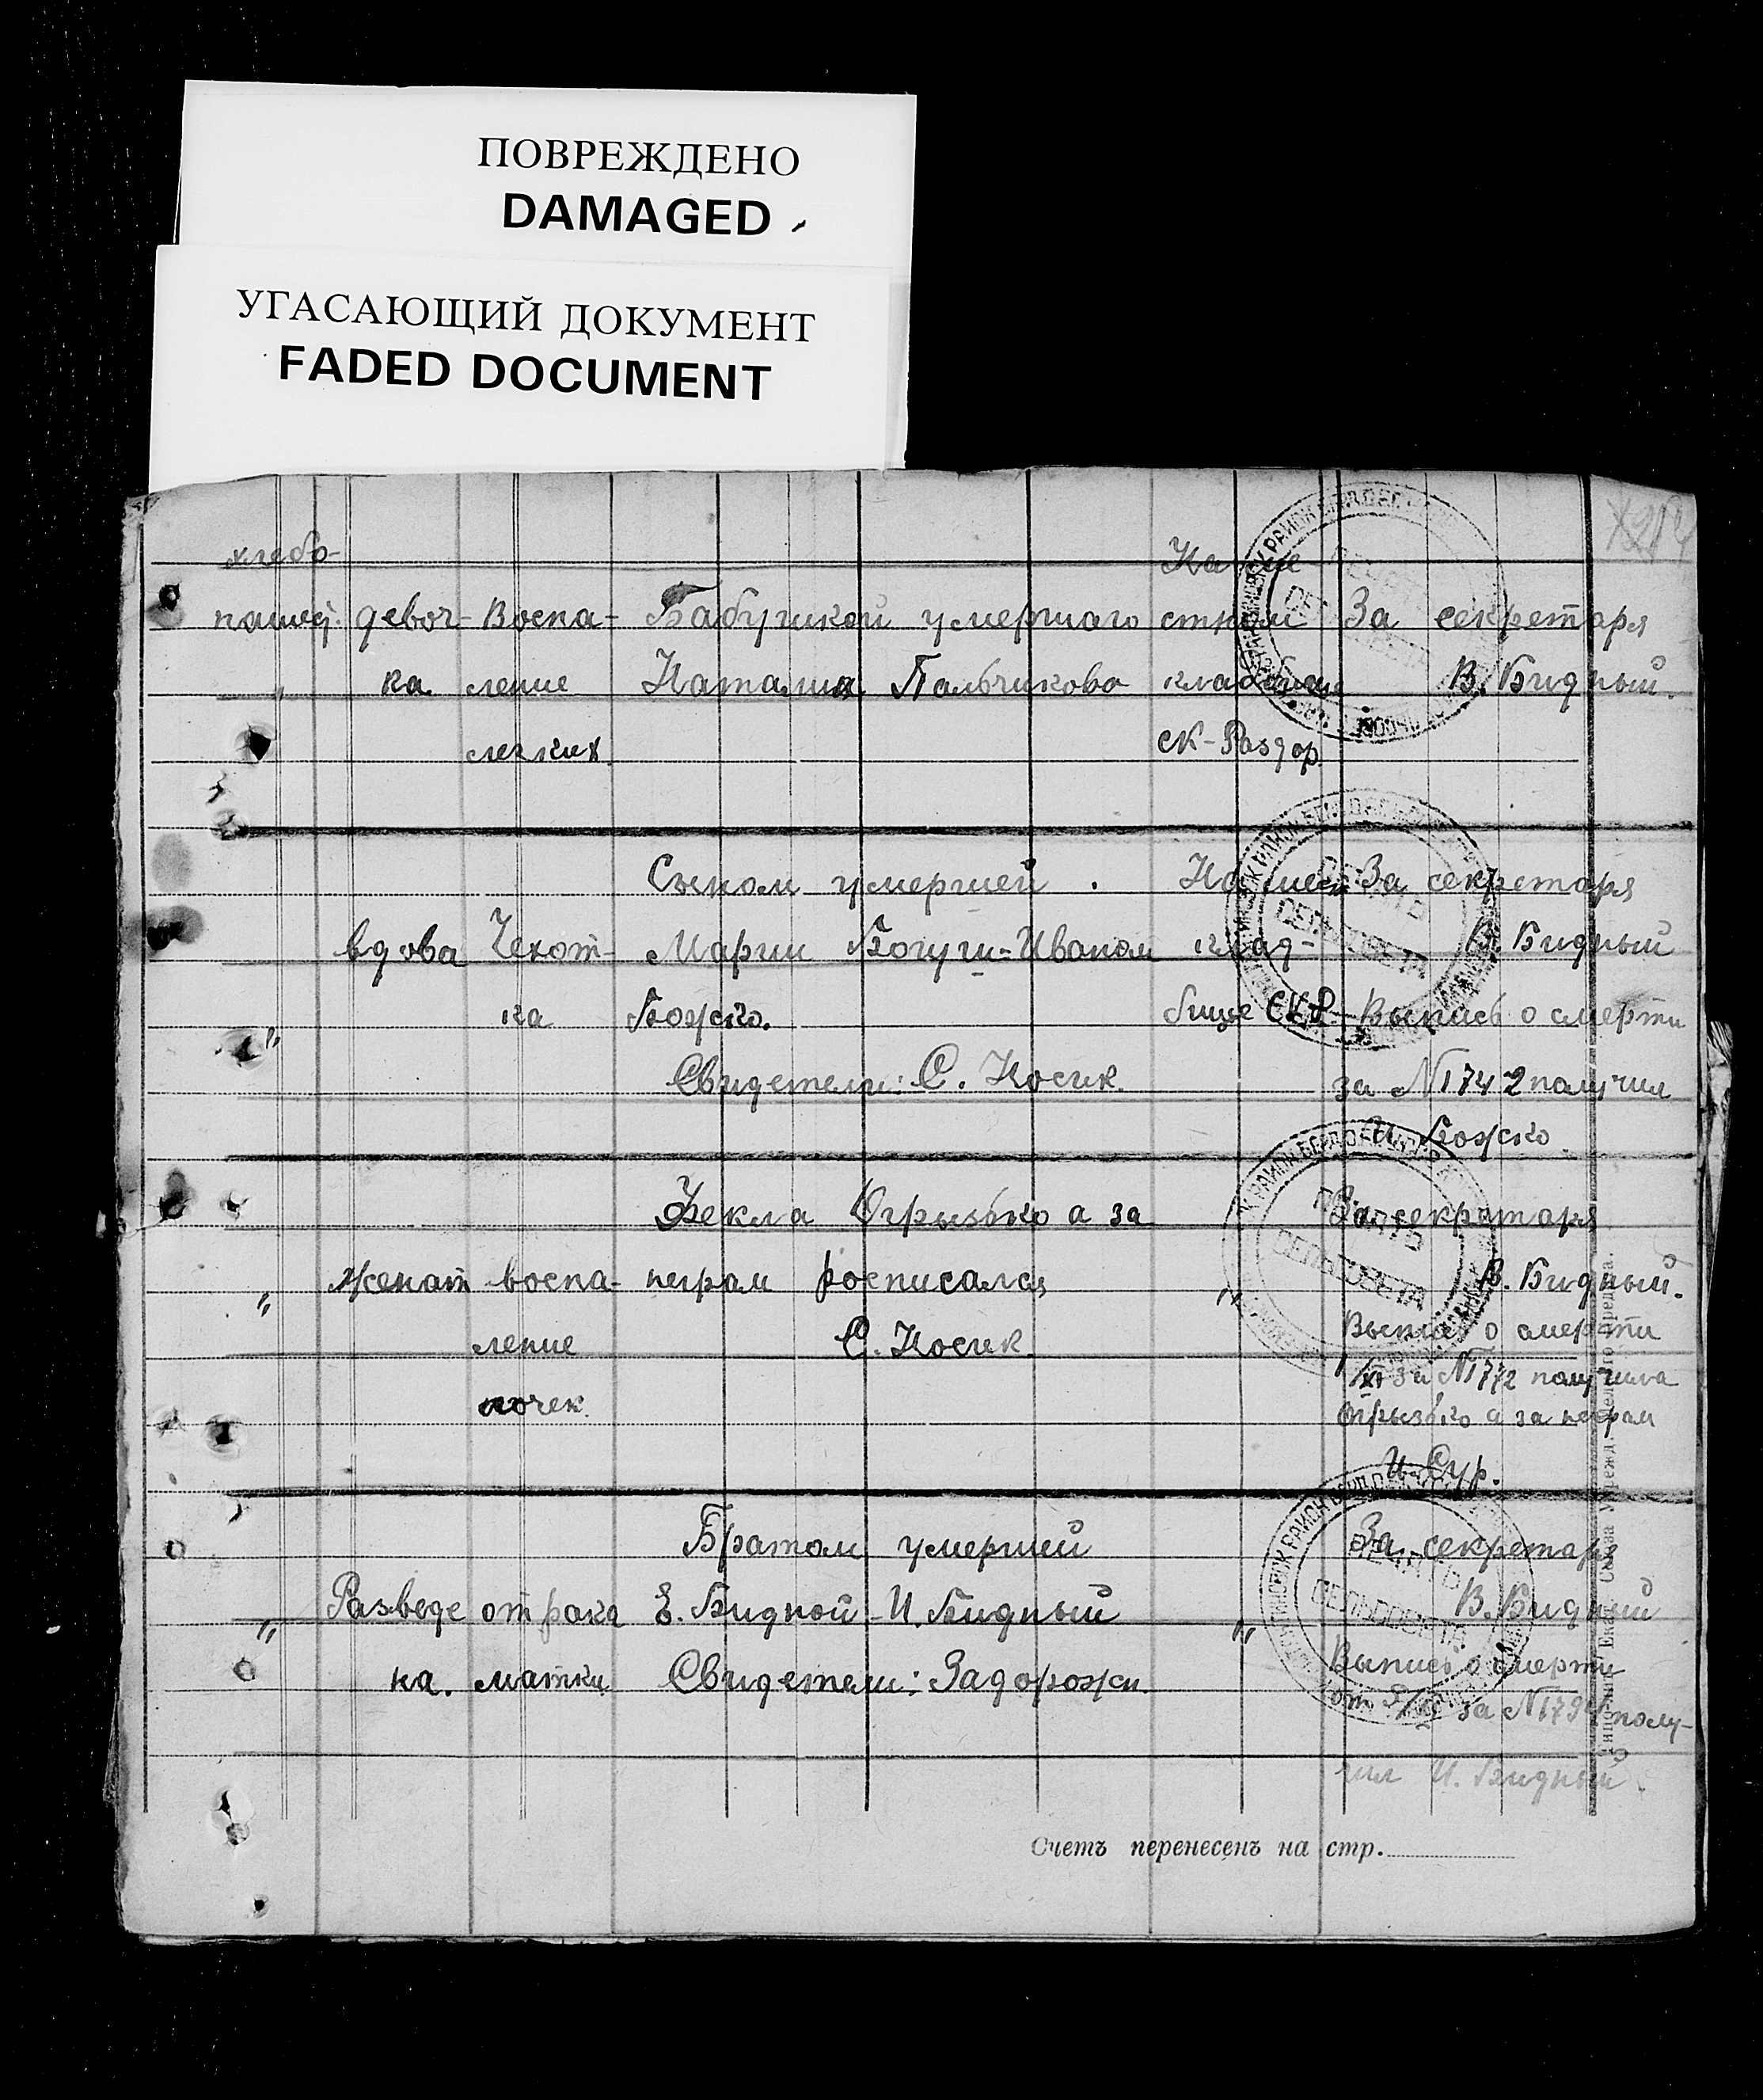 ПОВРЕЖДЕНО
DAMAGED
УГАСАЮЩИЙ ДОКУМЕНТ
FADED DOCUMENT
хлебо-
пашец девоч- Воспа- Бабушкой умершаго За секретаря
" ка. ление Наталия Пальчиково кладбище В. Бидный.
легких ск-Раздор.
Сыном умершей. За секретаря
вдова Чехот- Марии Богуш-Иваном клад- В. Бидный
" ка Божко. бище СКР Выпись о смерти
Свидетели: С. Носик. за N1742 получил
И. Божко
Фекла Огрызько а за За секретаря
" женат воспа- неграм росписался " В. Бидный.
ление С. Носик Выпись о смерти
почек. за N1772 получила
Огрызько а за неграм
И. Сур.
Братом умершей За секретаря
" Разведе от рака Е. Бидной - И. Бидный " В. Бидный
на. матки Свидетели: Задорожн. Выпись о смерти
от за N1794 полу-
чил И. Бидный.
ПЕЧАТЬ
СЕЛЬСОВЕТА
Счетъ перенесенъ на стр.